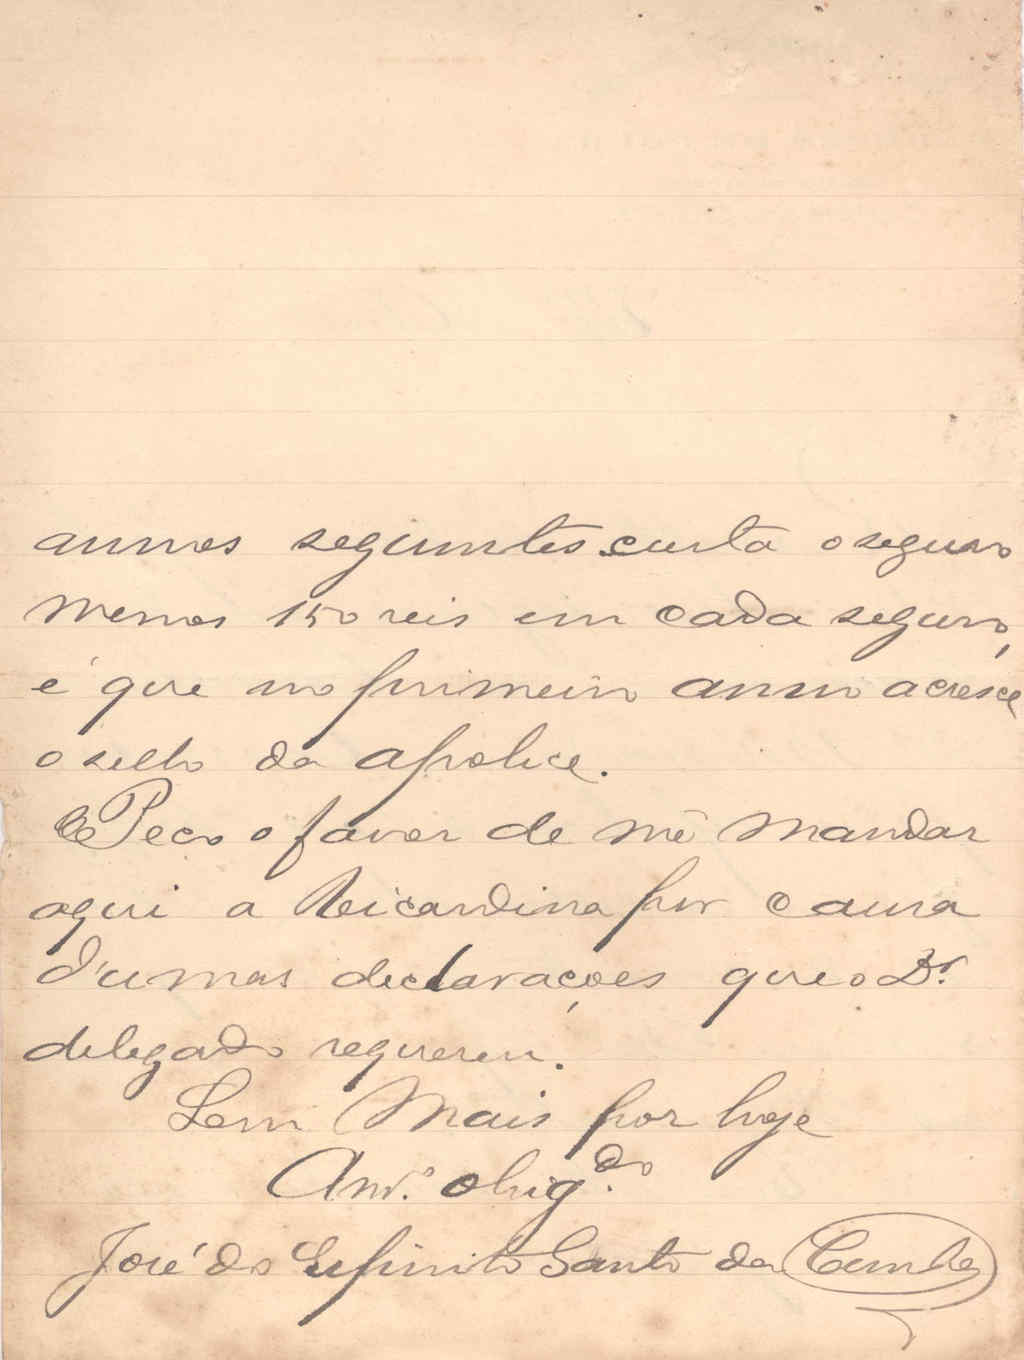 annos seguintes custa o seguro
menos 150 reis em cada seguro,
é que no primeiro anno acresce
o sello da apolice.
Peço o favor de me mandar
aqui a Ricardina por causa
d'umas declarações que o Dr.
delegado requereu.
Sem mais por hoje
Am.º obrig.do
José do Espirito Santo da Cunha